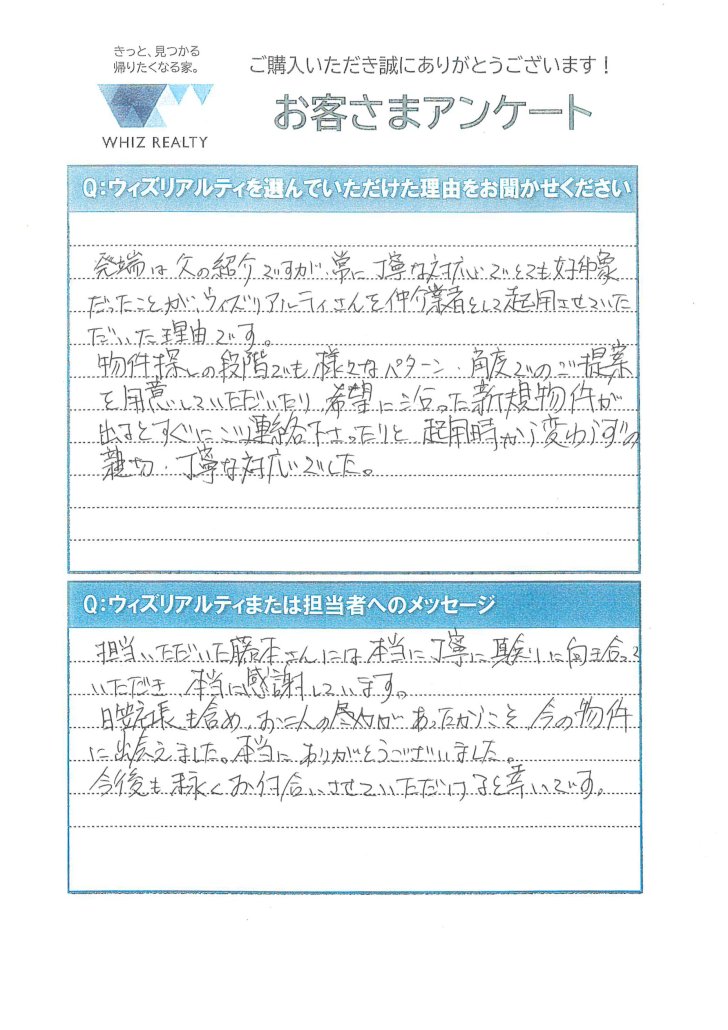 きっと、見つかる
帰りたくなる家。
WHIZ REALTY
ご購入いただき誠にありがとうございます！
お客さまアンケート
Q：ウィズリアルティを選んでいただけた理由をお聞かせください
発端は父の紹介ですが、常に丁寧な対応でとても好印象
だったことが、ウィズリアルティさんを仲介業者として起用させていた
だいた理由です。
物件探しの段階でも様々なパターン・角度でのご提案
を用意していただいたり、希望に沿った新規物件が
出るとすぐにご連絡下さったりと起用時から変わらずの
親切・丁寧な対応でした。
Q：ウィズリアルティまたは担当者へのメッセージ
担当いただいた藤本さんには本当に丁寧に親身に向き合って
いただき、本当に感謝しています。
部長も含め、お二人の尽力があったからこそ今の物件
に出会えました。本当にありがとうございました。
今後も末永くお付合いさせていただけると幸いです。